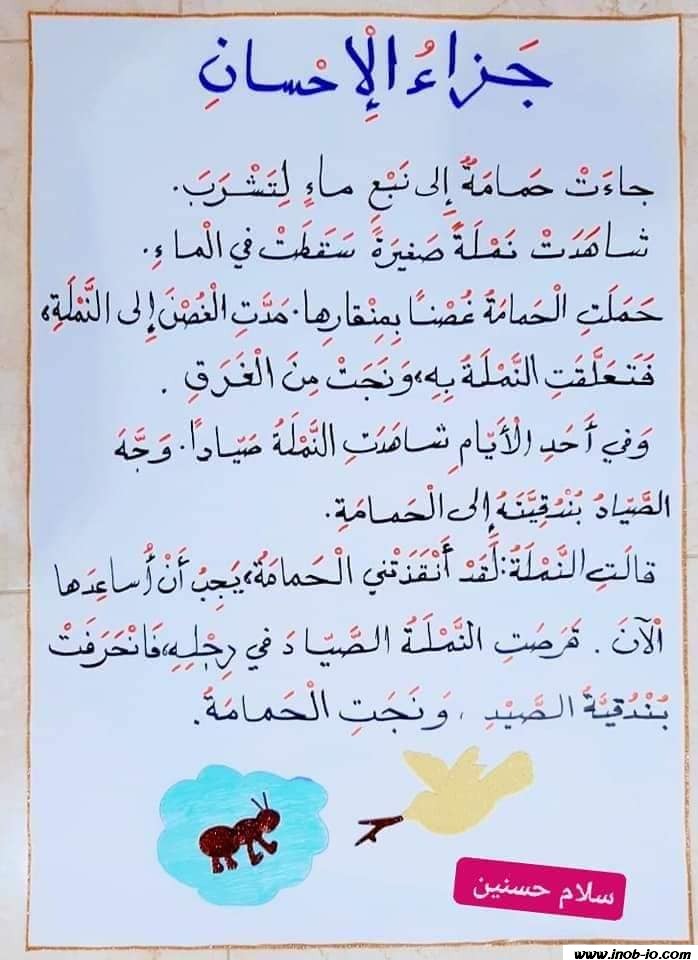 جَزاءُ الْإِحْسانِ
جاءَتْ حَمامَةٌ إِلى نَبْعِ ماءٍ لِتَشْرَبَ.
شاهَدَتْ نَمْلَةً صَغيرَةً سَقَطَتْ في الْماءِ.
حَمَلَتِ الْحَمامَةُ غُصْنًا بِمِنْقارِها. مَدَّتِ الْغُصْنَ إِلى النَّمْلَةِ،
فَتَعَلَّقَتِ النَّمْلَةُ بِهِ، وَنَجَتْ مِنَ الْغَرَقِ.
وَفي أَحَدِ الْأَيّامِ شاهَدَتِ النَّمْلَةُ صَيّادًا. وَجَّهَ
الصَّيّادُ بُنْدُقِيَّتَهُ إِلى الْحَمامَةِ.
قالَتِ النَّمْلَةُ: لَقَدْ أَنْقَذَتْني الْحَمامَةُ، يَجِبُ أَنْ أُساعِدَها
الْآنَ. قَرَصَتِ النَّمْلَةُ الصَّيّادَ في رِجْلِهِ، فَانْحَرَفَتْ
بُنْدُقِيَّةُ الصَّيْدِ، وَنَجَتِ الْحَمامَةُ.
سلام حسنين
www.inob-io.com